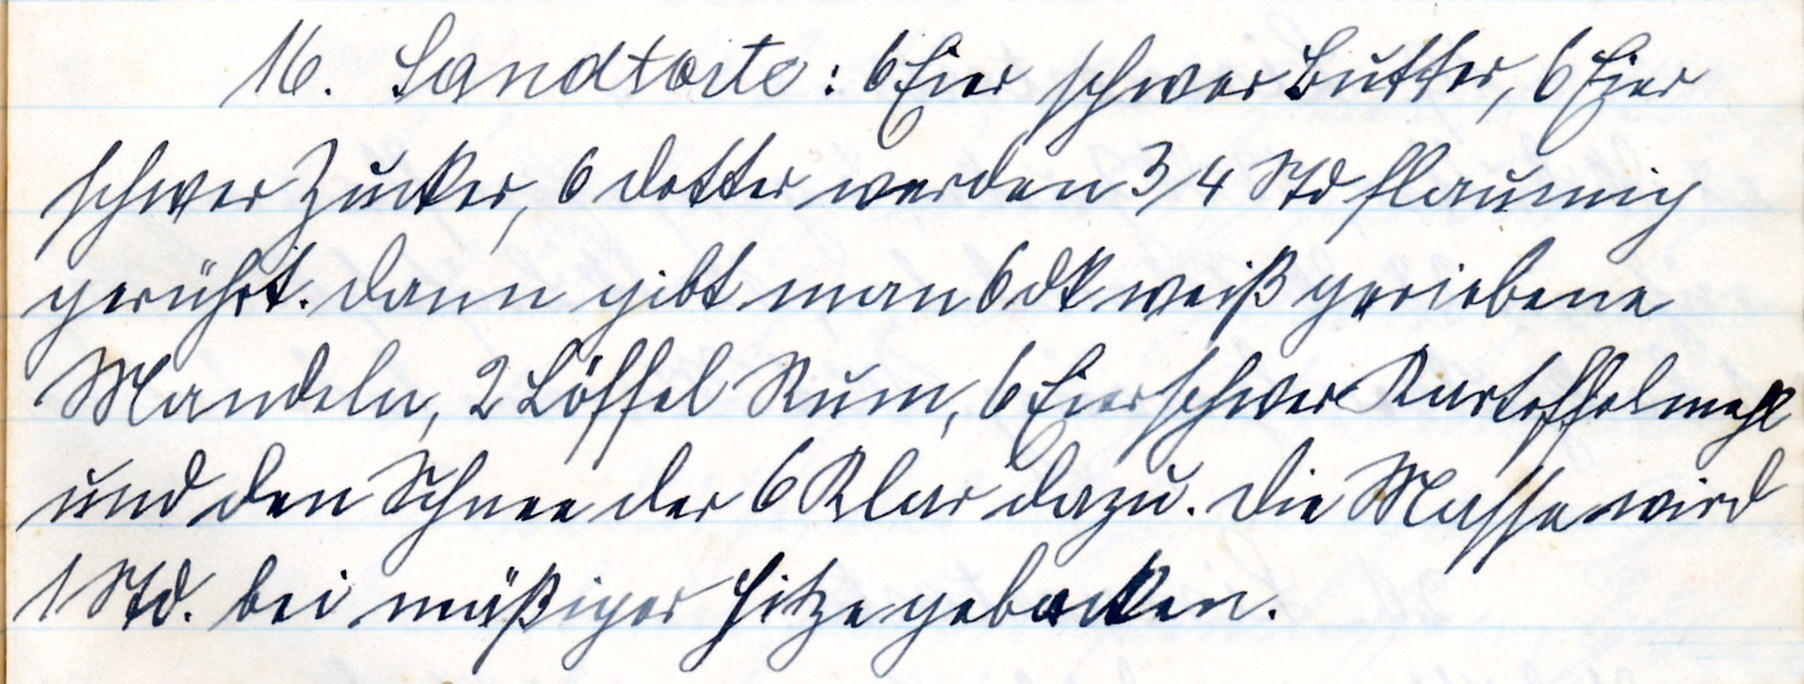 16. Sandtorte: 6 Eier schwer Butter, 6 Eier
schwer Zucker, 6 Dotter werden 3/4 Std flaumig
gerührt. Dann gibt man 6 dk weiß geriebene
Mandeln, 2 Löffel Rum, 6 Eier schwer Kartoffelmehl
und den Schnee der 6 Klar dazu. Die Masse wird
1 Std. bei mäßiger Hitze gebacken.